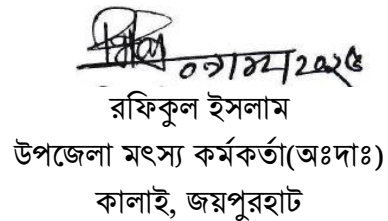 রফিকুল ইসলাম
উপজেলা মৎস্য কর্মকর্তা(অঃদাঃ)
কালাই, জয়পুরহাট